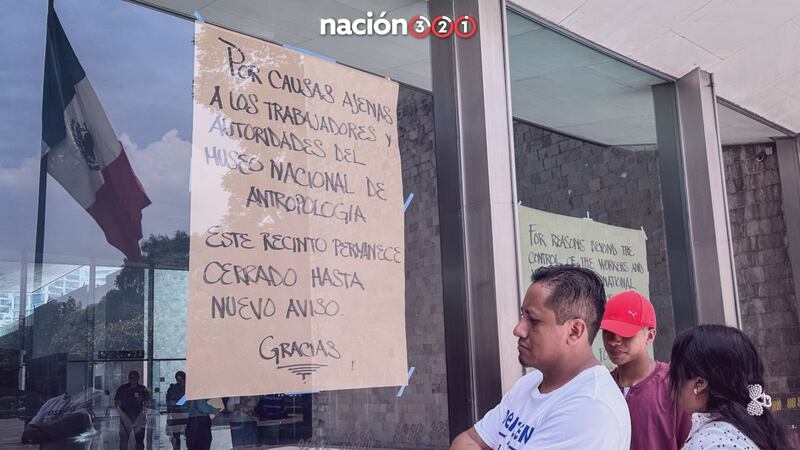 nación321
POR CAUSAS AJENAS
A LOS TRABAJADORES Y
AUTORIDADES DEL
MUSEO NACIONAL DE
ANTROPOLOGIA
ESTE RECINTO PERMANECE
CERRADO HASTA
NUEVO AVISO.
GRACIAS
FOR REASONS BEYOND THE
CONTROL OF THE WORKERS AND